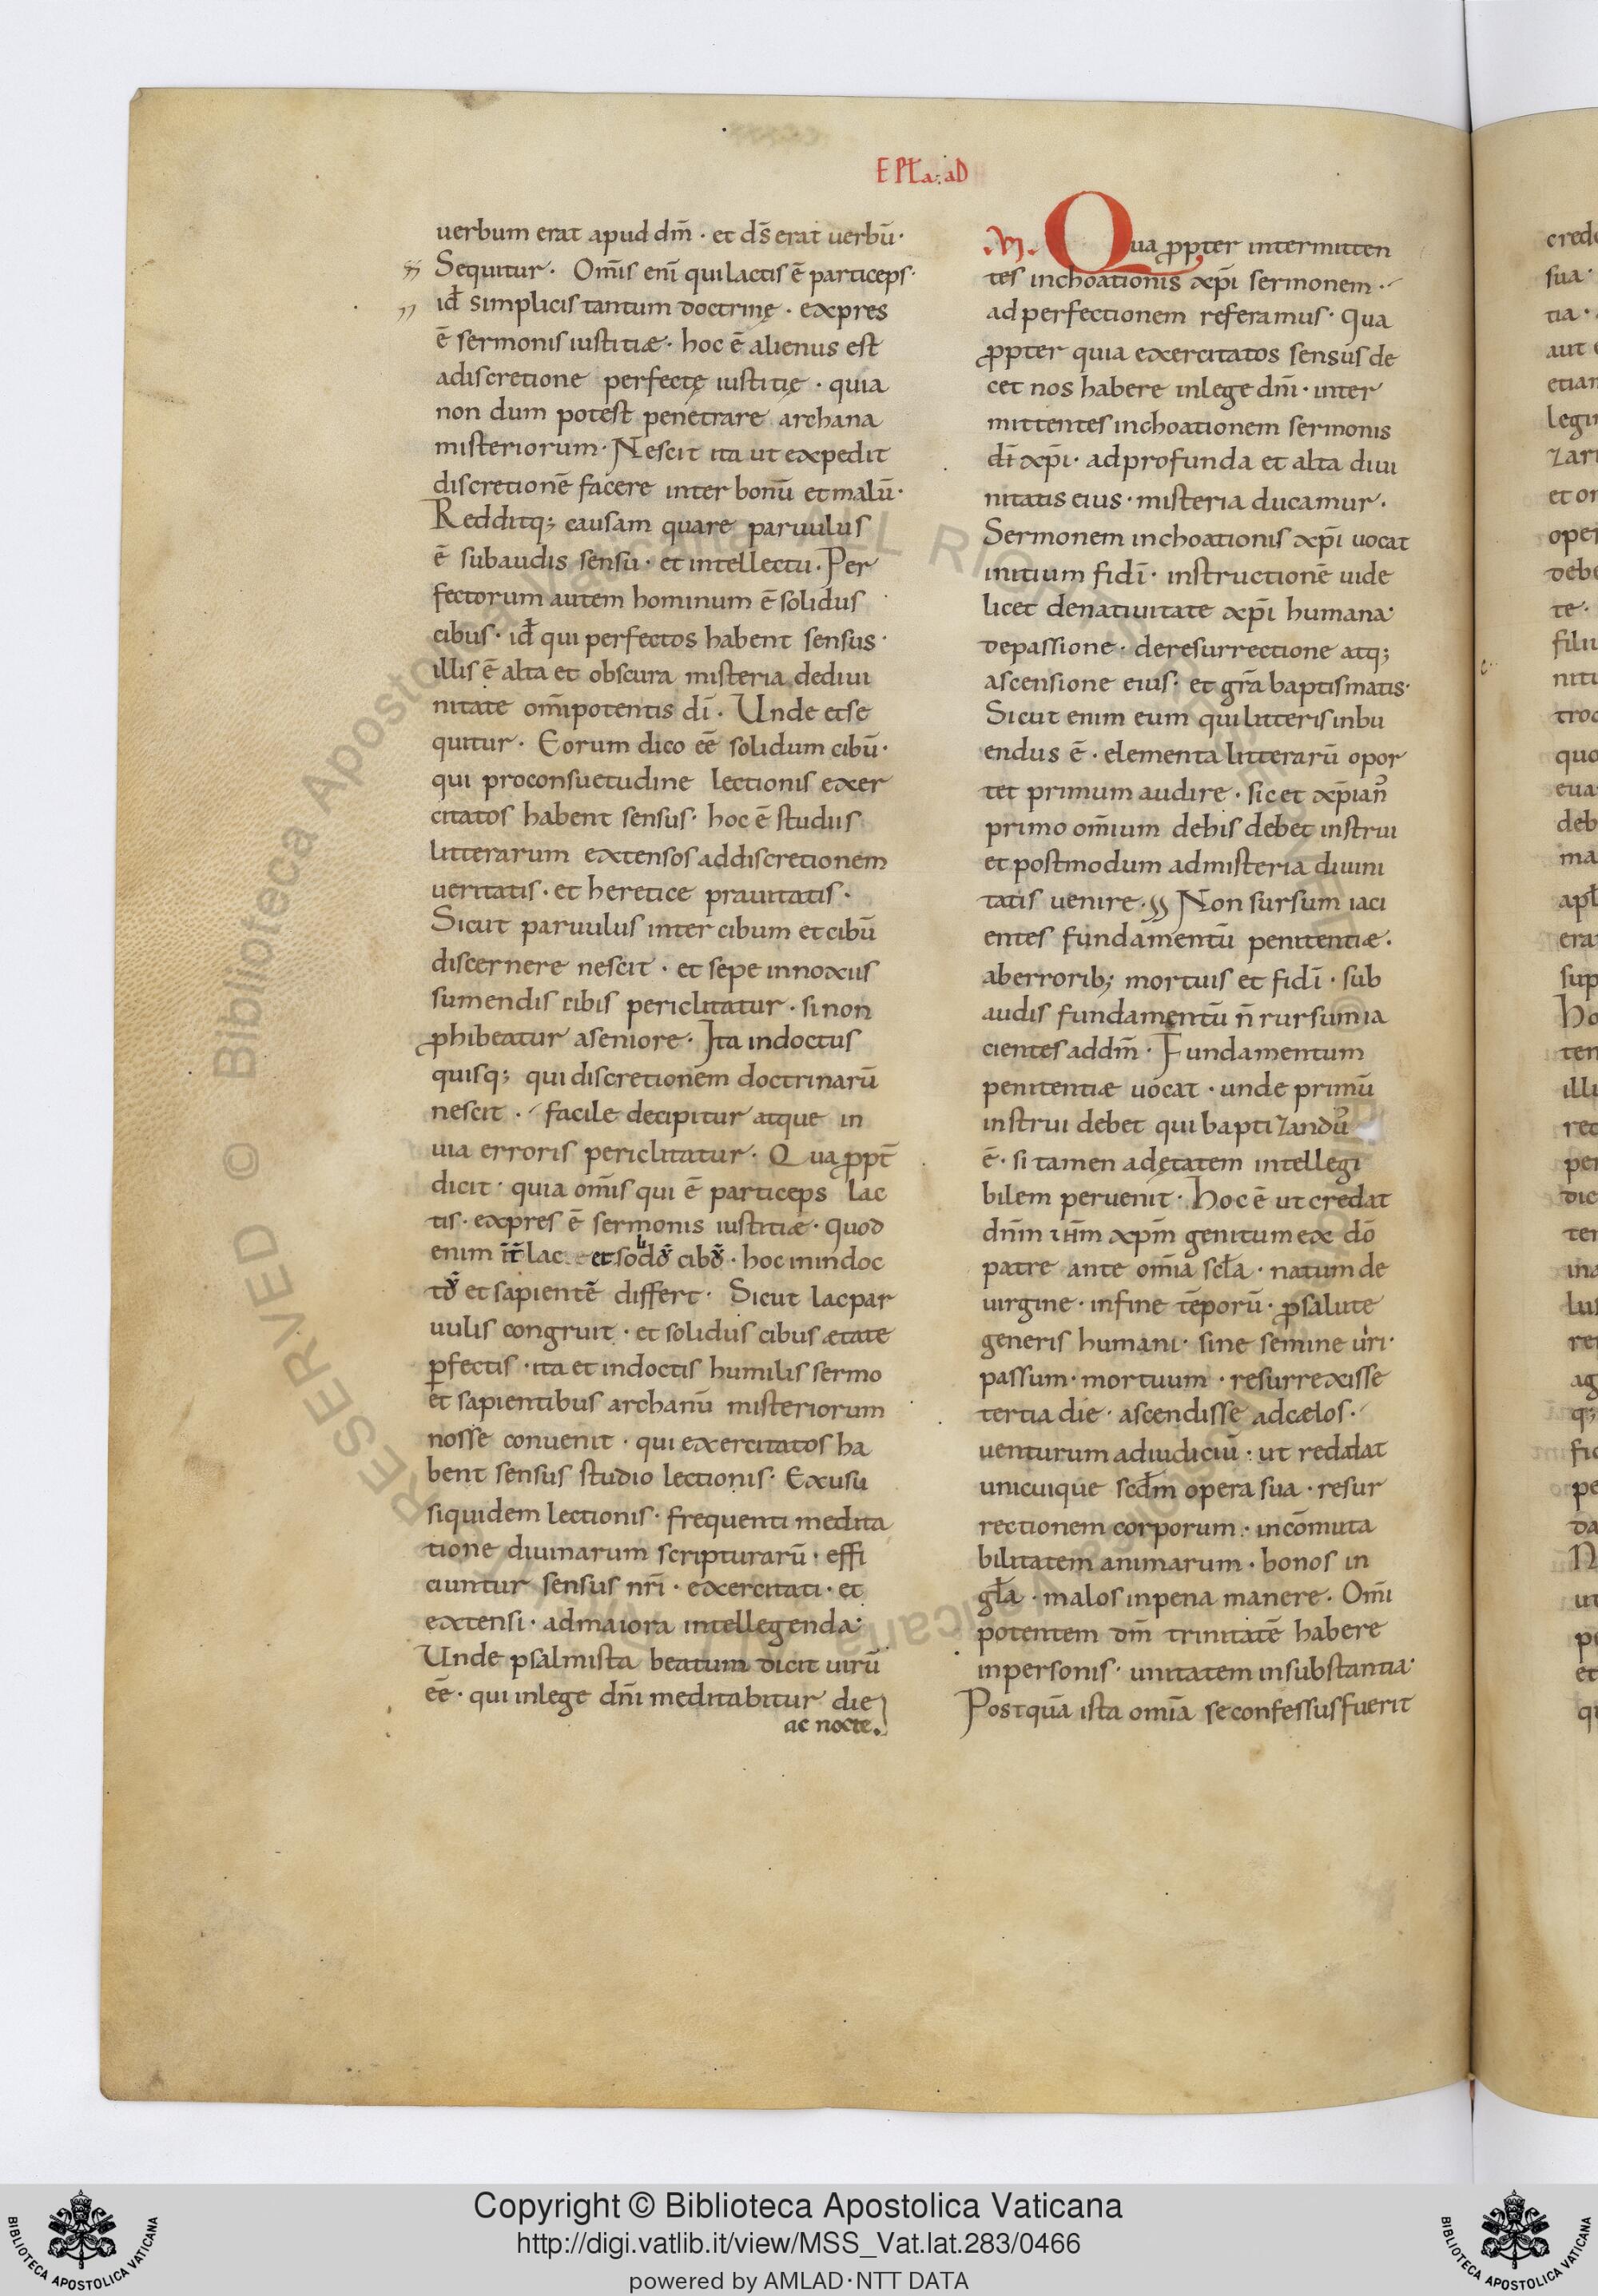 EPLa: aD
uerbum erat apud dm̄ · et ds̄ erat uerbū·
Sequitur · Om̄is eni᷑ qui lactis ē particeps·
id̄ simplicis tantum doctrinę · expres
ē sermonis iustitiæ · hoc ē alienus est
adiscretione perfectę iustitię · quia
non dum potest penetrare archana
misteriorum · Nescit ita ut expedit
discretionē facere inter bonū et malū·
Redditq; causam quare paruulus
ē subaudis sensu · et intellectu · Per
fectorum autem hominum ē solidus
cibus · id̄ qui perfectos habent sensus·
illis ē alta et obscura misteria dediui
nitate om̄ipotentis dī · Unde et se
quitur · Eorum dico eē solidum cibū·
qui proconsuetudine lectionis exer
citatos habent sensus · hoc ē studiis
litterarum extensos addiscretionem
ueritatis · et heretice prauitatis ·
Sicut paruulus inter cibum et cibū
discernere nescit · et sepe innoxiis
sumendis cibis periclitatur · si non
ꝓhibeatur aseniore · Ita indoctus
quisq; qui discretionem doctrinarū
nescit · facile decipitur atque in
uia erroris periclitatur · Quaꝓpt̄
dicit · quia om̄is qui ē particeps lac
tis · expres ē sermonis iustitiæ · quod
enim int̄ lac et cib · hoc inindoc
et sapientē differt · Sicut lac par
uulis congruit · et solidus cibus ætate
ꝑfectis · ita et indoctis humilis sermo
et sapientibus archanū misteriorum
nosse conuenit · qui exercitatos ha
bent sensus studio lectionis · Exusu
siquidem lectionis · frequenti medita
tione diuinarum scripturarū · effi
ciuntur sensus nr̄i · exercitati · et
extensi · admaiora intellegenda·
Unde psalmista beatum dicit uirū
eē · qui inlege dn̄i meditabitur die
ac nocte.
VI. Quaꝓpter intermitten
tes inchoationis xp̄i sermonem ·
ad perfectionem referamus · Qua
ꝓpter quia exercitatos sensus de
cet nos habere inlege dn̄i · inter
mittentes inchoationem sermonis
dī xp̄i · adprofunda et alta diui
nitatis eius · misteria ducamur ·
Sermonem inchoationis xp̄i uocat
initium fidī · instructionē uide
licet denatiuitate xp̄i humana·
depassione · deresurrectione atq;
ascensione eius · et gr̄a baptismatis·
Sicut enim eum qui litteris inbu
endus ē · elementa litterarū opor
tet primum audire · sic et xp̄ian᷒
primo om̄ium dehis debet instrui
et postmodum admisteria diuini
tatis uenire · Non sursum iaci
entes fundamentū penitentiæ ·
aberrorib; mortuis et fidī · sub
audis fundamentū n̄ rursum ia
cientes addm̄ · Fundamentum
penitentiæ uocat · unde primū
instrui debet qui baptizand᷒
ē · si tamen adętatem intellegi
bilem peruenit · Hoc ē ut credat
dn̄m ihm̄ xp̄m genitum ex dō
patre ante om̄ia scła · natum de
uirgine · infine tēporū · ꝓsalute
generis humani · sine semine uiri·
passum · mortuum · resurrexisse
tertia die · ascendisse adcælos ·
uenturum adiudiciū · ut reddat
unicuique scdm̄ opera sua · resur
rectionem corporum · incōmuta
bilitatem animarum · bonos in
gła · malos inpena manere · Om̄i
potentem dm̄ trinitatē habere
inpersonis · unitatem insubstantia·
Postquā ista om̄ia se confessus fuerit
cred
sua ·
tia ·
aut
etiam
legin
zari
et
oper
debe
te ·
filiu
nitu
quo
deb
ma
era
sup
Ho
ten
illu
per
dic
ut
et
Copyright © Biblioteca Apostolica Vaticana
http://digi.vatlib.it/view/MSS_Vat.lat.283/0466
powered by AMLAD·NTT DATA
BIBLIOTECA APOSTOLICA VATICANA
BIBLIOTECA APOSTOLICA VATICANA